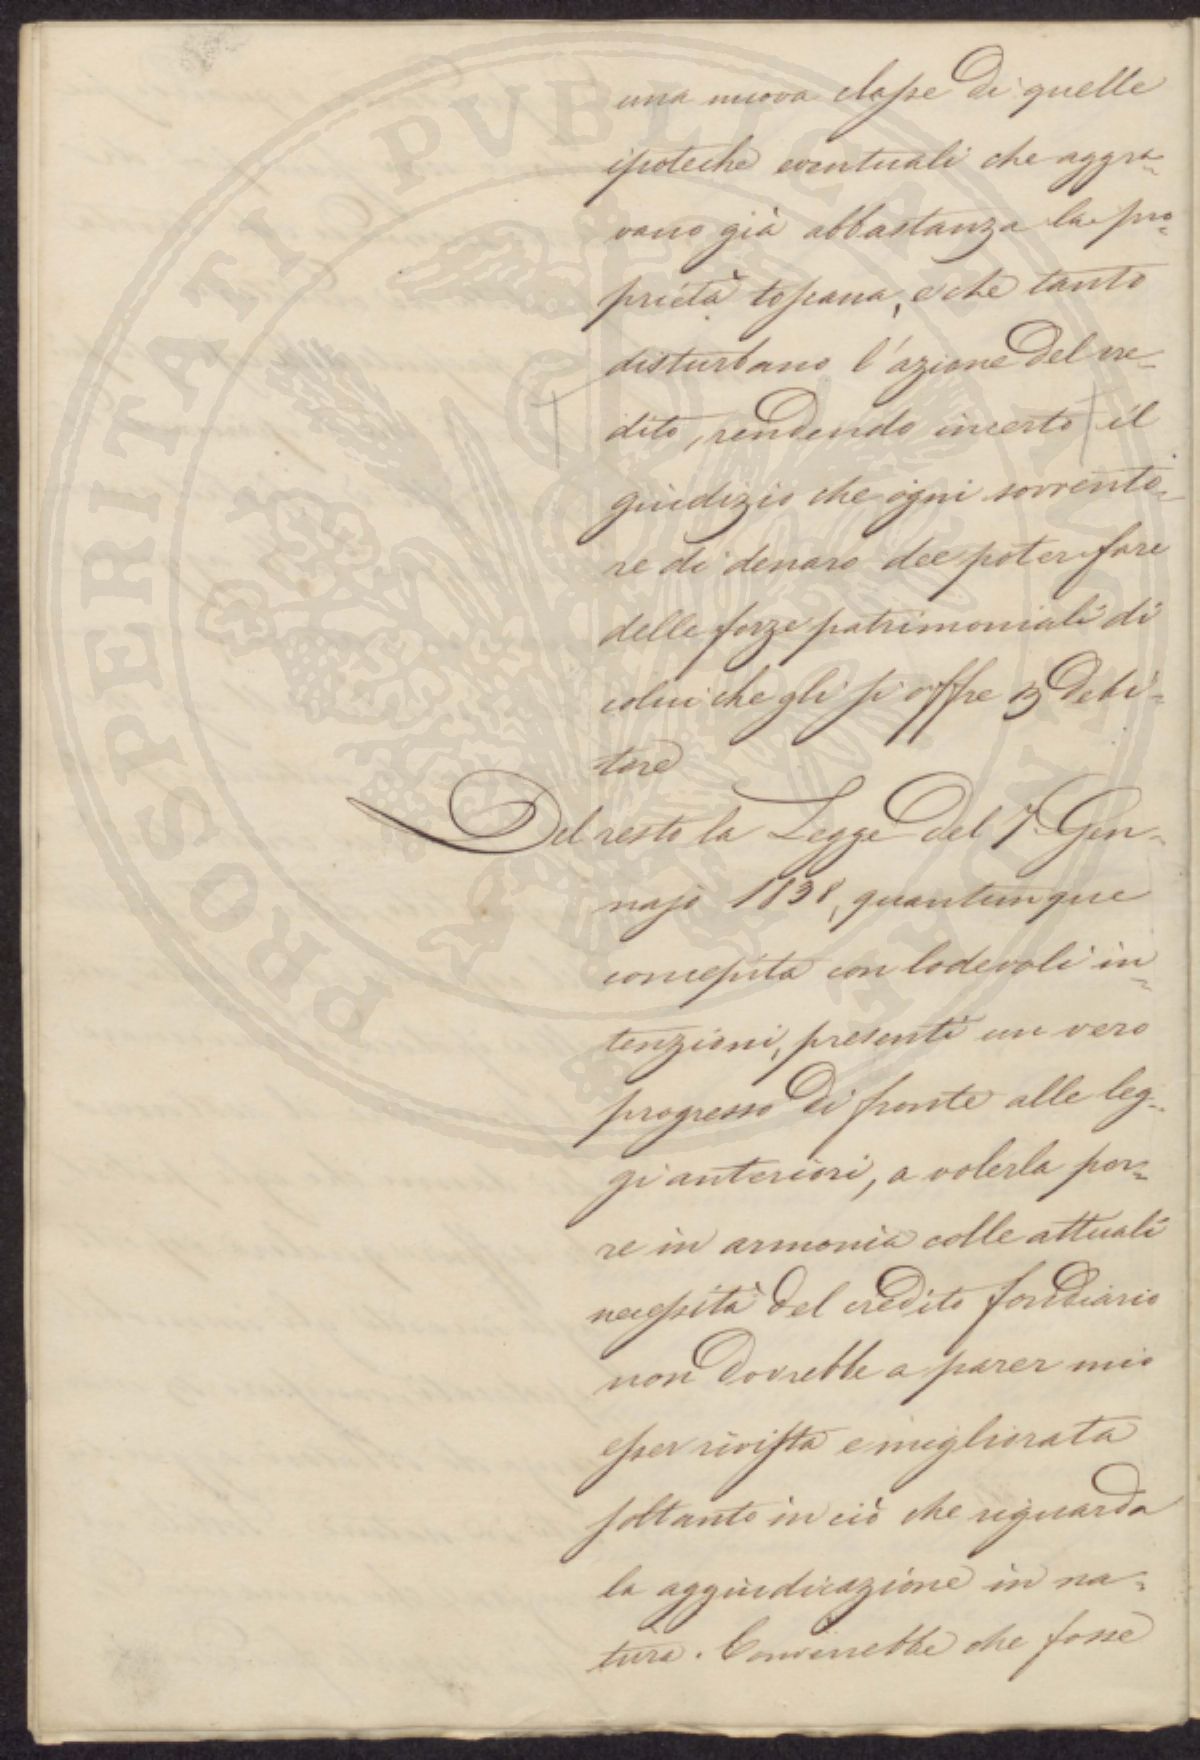 una nuova classe di quelle
ipoteche eventuali che aggra-
vano già abbastanza la pro-
prietà toscana, e che tanto
disturbano l'azione del cre-
dito, rendendo incerto il
giudizio che ogni sovvento-
re di denaro dee poter fare
delle forze patrimoniali di
colui che gli si offre p debi-
tore
Del resto la Legge del 7. Gen-
najo 1838, quantunque
concepita con lodevoli in-
tenzioni, presenti un vero
progresso di fronte alle leg-
gi anteriori, a volerla por-
re in armonia colle attuali
necessità del credito fondiario
non dovrebbe a parer mio
esser rivista e migliorata
soltanto in ciò che riguarda
la aggiudicazione in na-
tura. Converrebbe che fosse
PROSPERITATI PUBLICAE AUGENDAE